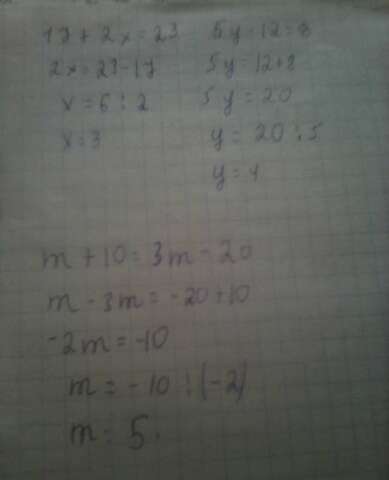 17 + 2x = 23
2x = 23 - 17
x = 6 : 2
x = 3
5y - 12 = 8
5y = 12 + 8
5y = 20
y = 20 : 5
y = 4
m + 10 = 3m - 20
m - 3m = -20 + 10
-2m = -10
m = -10 : (-2)
m = 5.